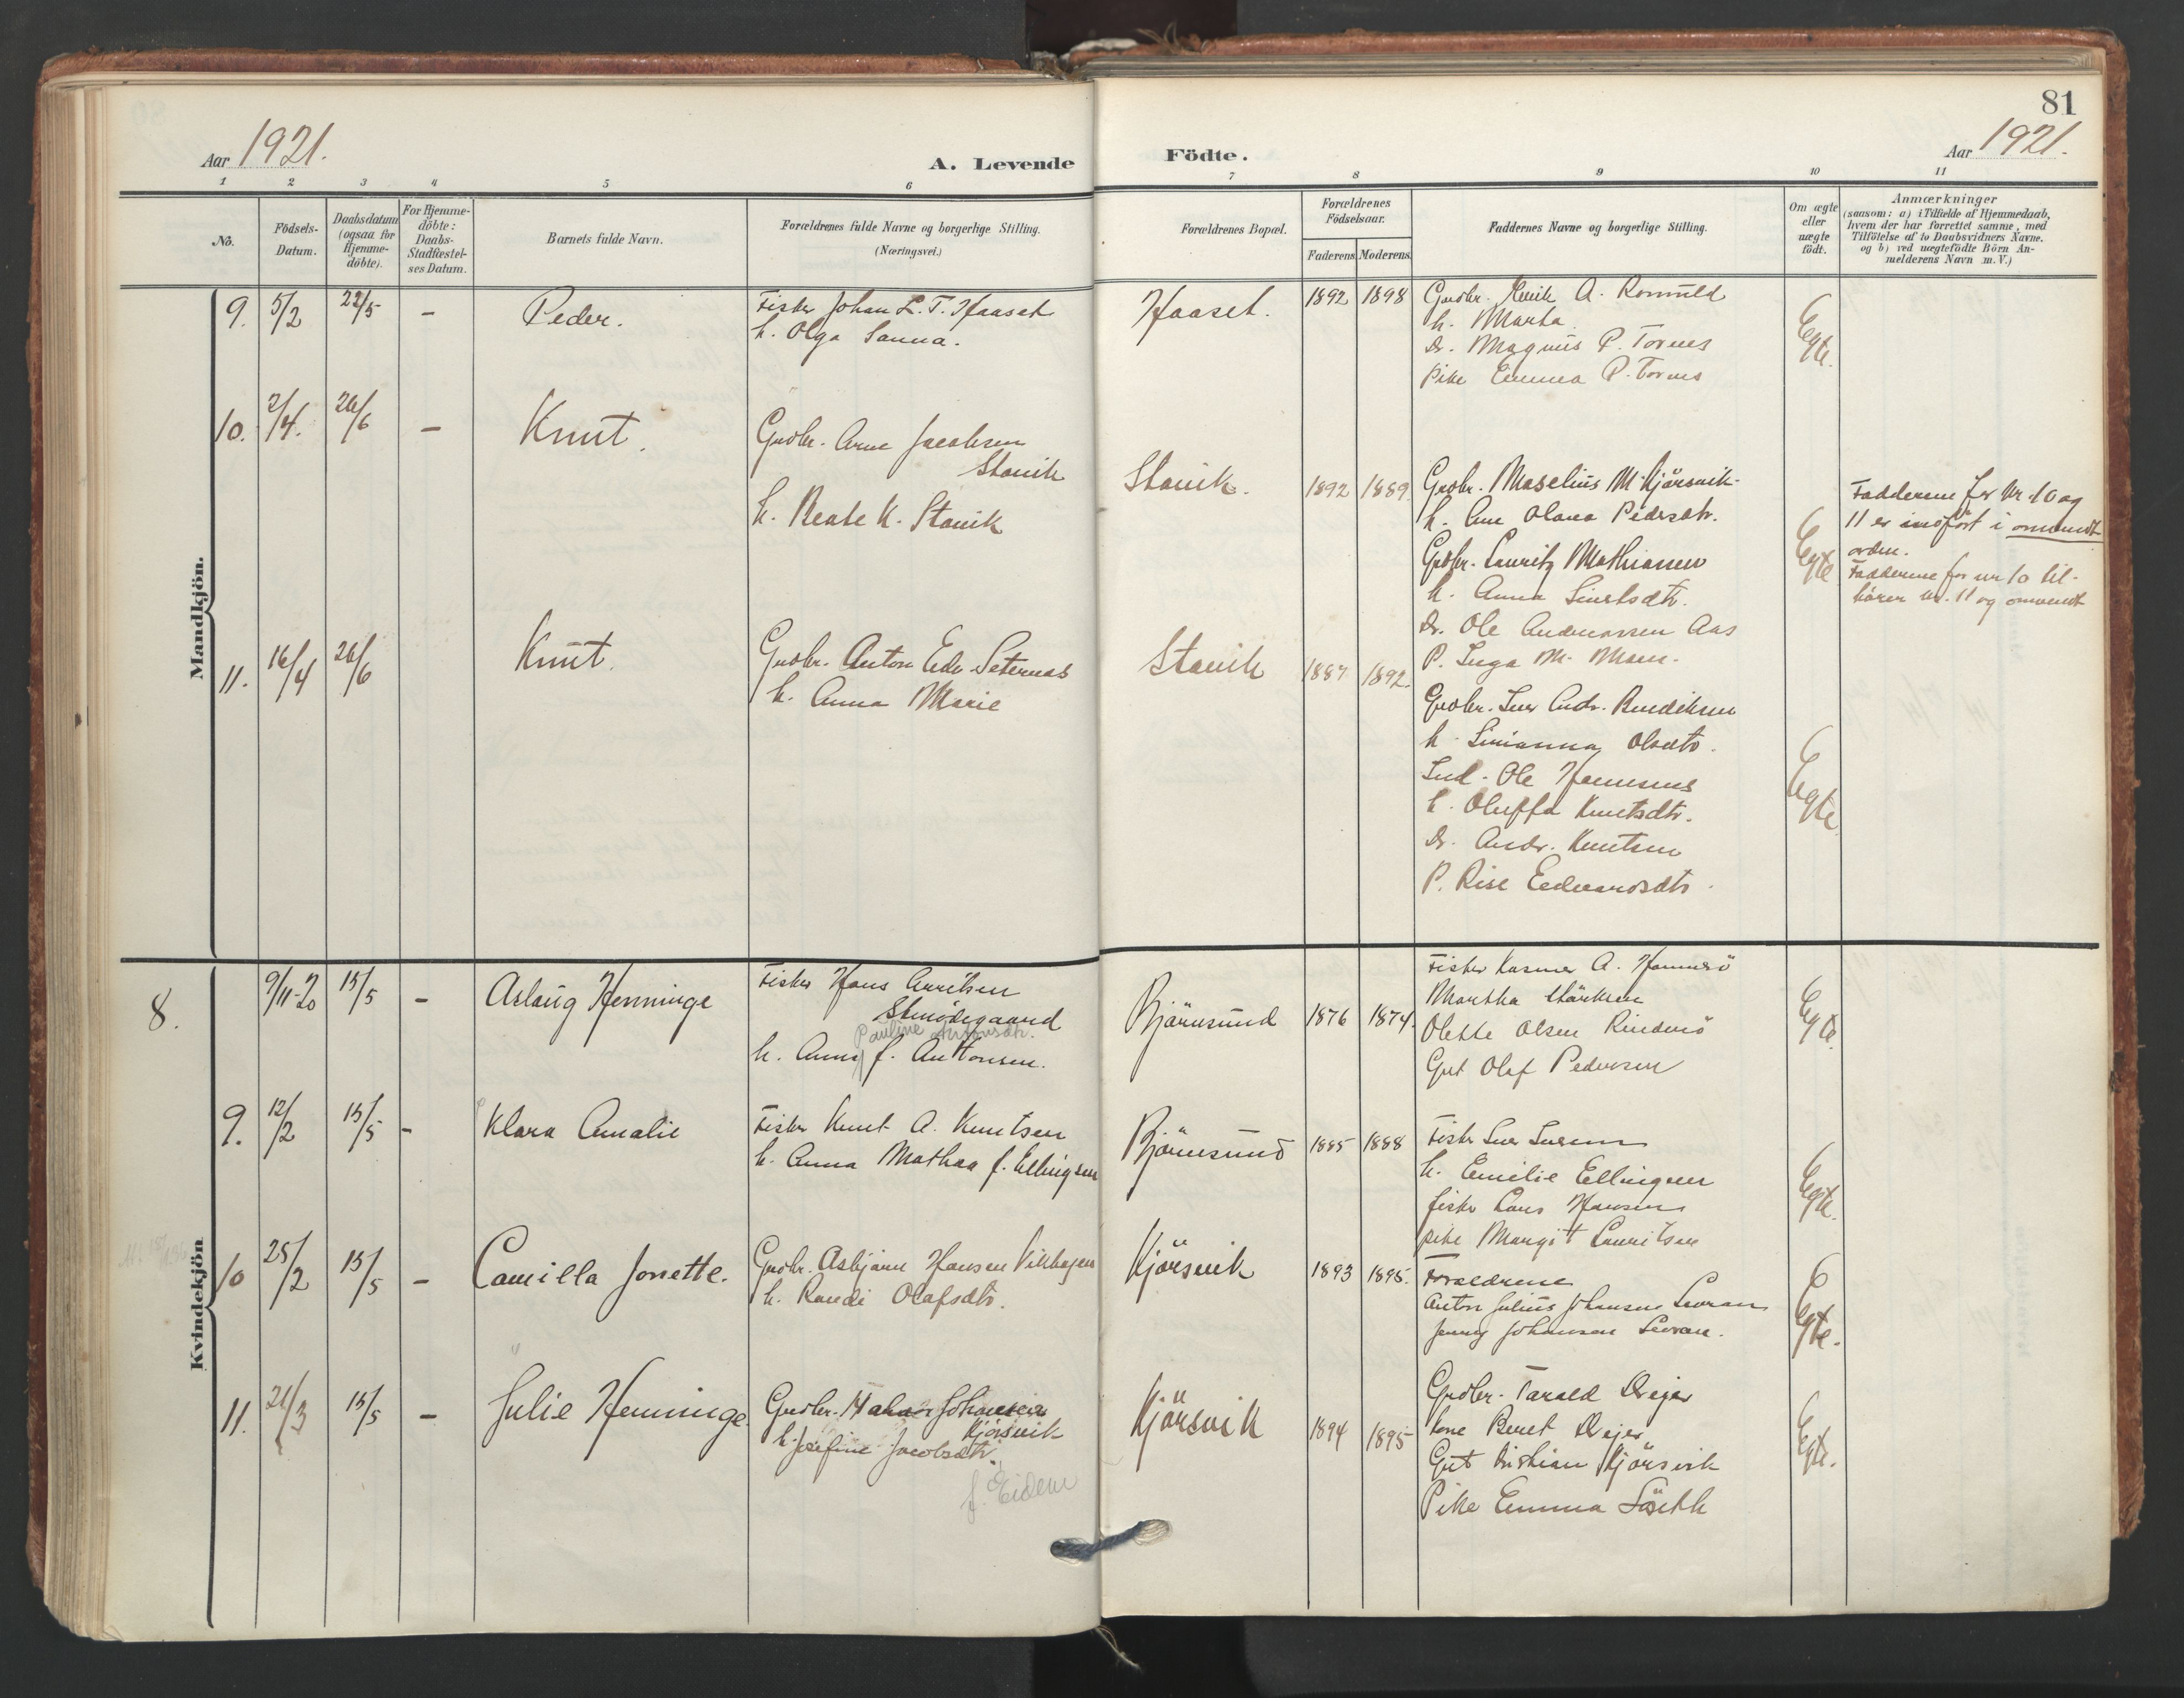 81
Aar 1921.
A. Levende
Födte.
Aar 1921.
1 2 3 4 5 6 7 8 9 10 11
No.
Födsels-
Datum.
Daabsdatum
(ogsaa for
Hjemme-
döbte).
For Hjemme-
döbte:
Daabs-
Stadfæstel-
ses Datum.
Barnets fulde Navn.
Forældrenes fulde Navne og borgerlige Stilling.
(Næringsvei.)
Forældrenes Bopæl.
Forældrenes
Födselsaar.
Faderens Moderens
Faddernes Navne og borgerlige Stilling.
Om ægte
eller
uægte
födt.
Anmærkninger
(saasom: a) i Tilfælde af Hjemmedaab,
hvem der har forrettet samme, med
Tilföielse af to Daabsvidners Navne.
og b) ved uægtefödte Börn An-
melderens Navn m. V.)
Mandkjön.
9. 5/2 22/5 – Peder.
Fisker Johan L. T. Haaset
h. Olga Sanna.
Haaset. 1892 1898
Gaardbr. A. Romuld
h. Marta
Dr. Magnus P. Tornes
Pike Emma P. Tornes
Egte.
10. 2/4. 26/6 – Knut.
Grdbr. Arne Jacobsen
Stavik
h. Beate K. Stavik
Stavik. 1892 1889.
Grdbr. Maselius M. Kjörsvik
h. Ane Olava Pedersdtr.
Grdbr. Lauritz Mathiassen
h. Anna Sivertsdtr.
Dr. Ole Andreassen Aas
P. Inga M.
Egte
Fadderene for Nr. 10 og
11 er indfört i omvendt
orden.
Fadderene for nr 10 til-
hörer Nr. 11 og omvendt
11. 16/4 26/6 Knut.
Grdbr. Anton Edv. Seternes
h. Anna Marie
Stavik 1887 1892.
Grdbr. Iver Andr. Bendiksen
h. Sinianna Olsdtr.
Ind. Ole
h. Oluffa Knutsdtr.
Dr. Andr. Knutsen
P. Rise Edvardsdtr.
Egte
Kvindekjön
8. 9/11-20 15/5 – Aslaug Henninge
Fisker Hans Henriksen
Stenödegaard
Pauline Antonsdtr.
h. Anna f. Anttonsen.
Björnsund 1876 1874.
Fisker Kasmer A.
Martha
Olette Olsen
Gut Olaf Pedersen
Egte
9. 12/2 15/5 – Klara Amalie
Fisker Knut A. Knutsen
h. Anna Mathea f. Ellingsen
Björnsund 1885 1888
Fisker Iver Iversen
h. Emilie Ellingsen
fisker Lars Hansen
pike Margit Lauritsen
Egte.
10 25/2 15/5 – Camilla Jonette.
Grdbr. Asbjörn Hansen Vikhagen
h. Randi Olafsdtr.
Kjörsvik 1893 1895.
Forældrene
Anton Julius Johansen
Jenny Johansen
Egte.
11. 21/3 15/5 – Julie Henninge.
Grdbr. Johansen
Kjörsvik
h. Josefine Jacobsdtr.
f. Eidem
Kjörsvik 1894 1895
Grdbr. Tarald Drejer
kone Beret Drejer
Gut Kristian Kjörsvik
Pike Emma
Egte.